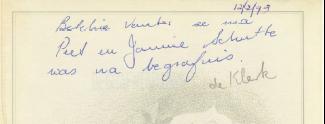 12/2/93
Vantes se ma
Piet en Jannie Schutte
was na begrafnis.
de Klerk